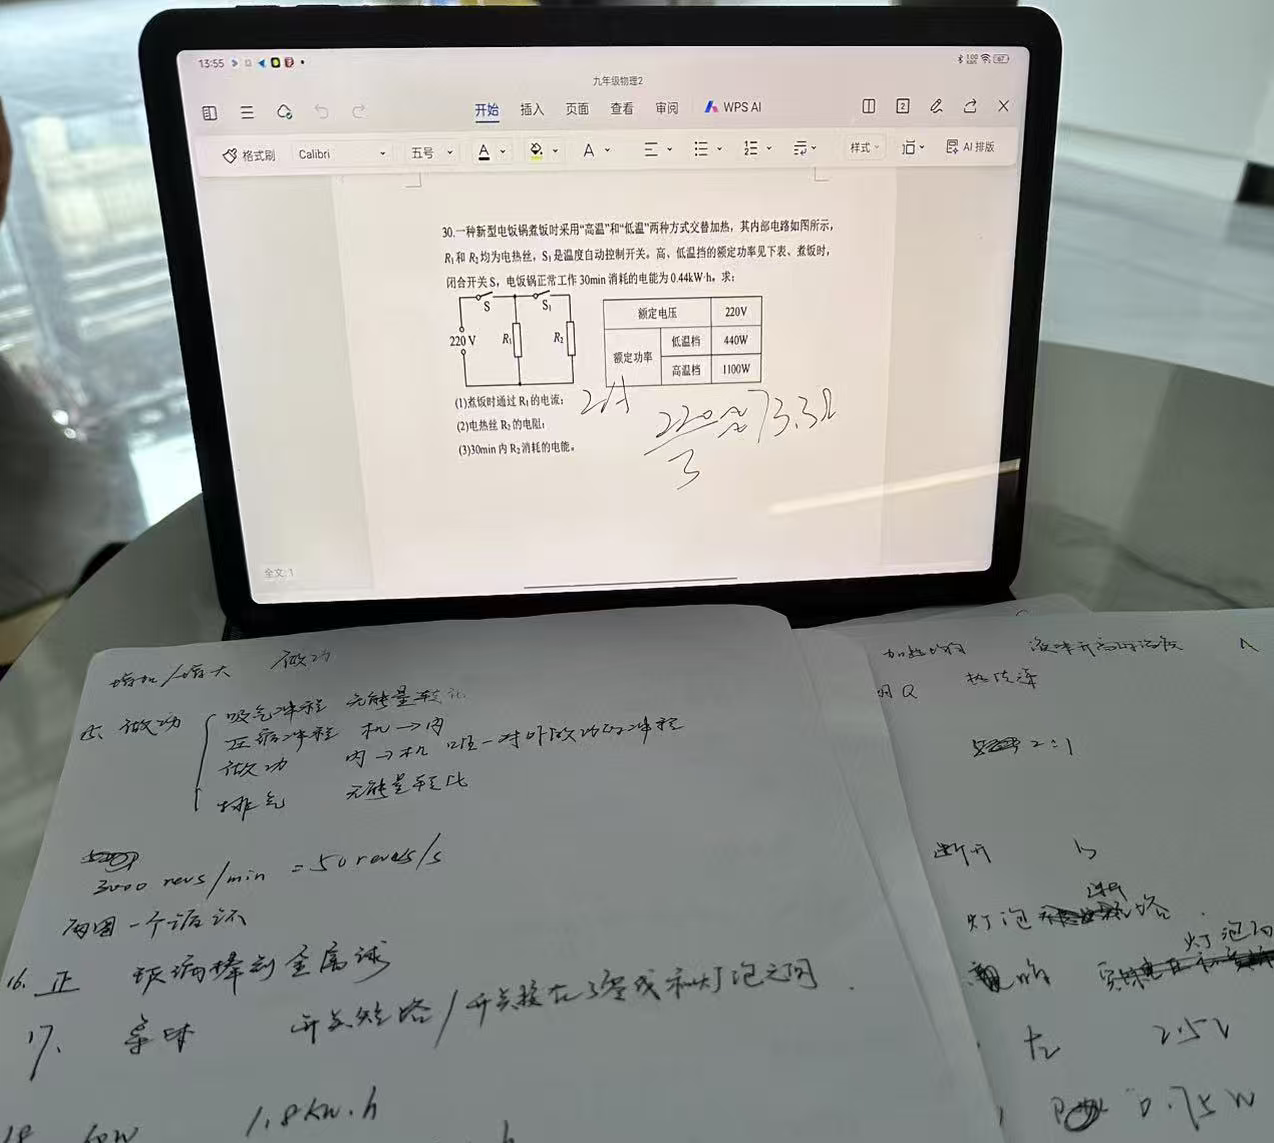 13:55
67
九年级物理2
开始 插入 页面 查看 审阅 WPS AI
格式刷 Calibri 五号 A A 样式 AI 排版
30.一种新型电饭锅煮饭时采用“高温”和“低温”两种方式交替加热，其内部电路如图所示，
R₁和 R₂均为电热丝，S₁是温度自动控制开关。高、低温挡的额定功率见下表、煮饭时，
闭合开关 S，电饭锅正常工作 30min 消耗的电能为 0.44kW·h。求：
S S₁
220 V R₁ R₂
额定电压 220V
额定功率 低温档 440W
高温档 1100W
(1)煮饭时通过 R₁的电流；
2A
(2)电热丝 R₂的电阻；
220/3 ≈73.3Ω
(3)30min 内 R₂消耗的电能。
全文: 1
增加/增大 做功
做功
吸气冲程 无能量转化
压缩冲程 机→内
做功 内→机 唯一对外做功的冲程
排气 无能量转化
3000 revs/min = 50 revs/s
两圈一个循环
16. 正 玻璃棒到金属球
17. 开关短路/开关接在了零线和灯泡之间
1.8kw.h
加热均匀
热传递
2:1
断开
灯泡
灯泡
2.5V
0.75W